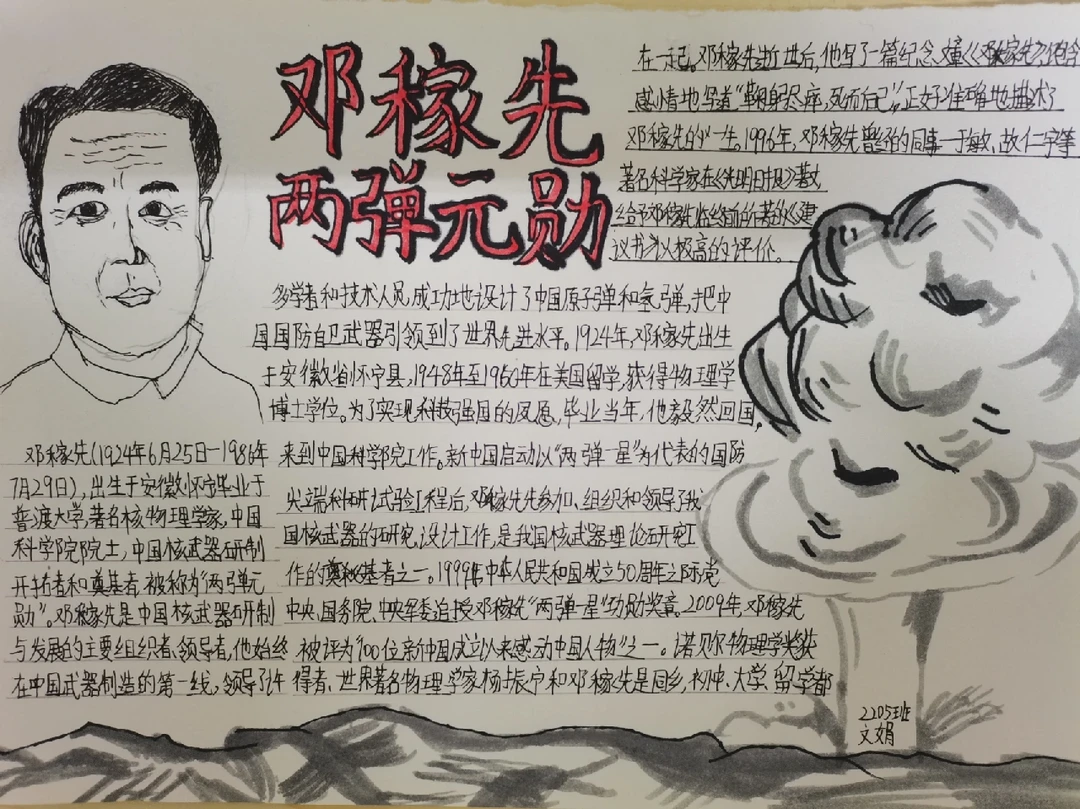 邓稼先
两弹元勋
邓稼先(1924年6月25日—1986年
7月29日),出生于安徽怀宁毕业于
普渡大学,著名核物理学家,中国
科学院院士,中国核武器研制
开拓者和奠基者,被称为“两弹元
勋”。邓稼先是中国核武器研制
与发展的主要组织者、领导者,他始终
在中国武器制造的第一线,领导了许
多学者和技术人员,成功地设计了中国原子弹和氢弹,把中
国国防自卫武器引领到了世界先进水平。1924年,邓稼先出生
于安徽省怀宁县,1948年至1950年在美国留学,获得物理学
博士学位。为了实现科技强国的夙愿,毕业当年,他毅然回国,
来到中国科学院工作。新中国启动以“两弹一星”为代表的国防
尖端科研试验工程后,邓稼先先参加、组织和领导了我
国核武器的研究、设计工作,是我国核武器理论研究工
作的奠基者之一。1999年中华人民共和国成立50周年之际,党
中央、国务院、中央军委追授邓稼先“两弹一星”功勋奖章。2009年,邓稼先
被评为“100位新中国成立以来感动中国人物”之一。诺贝尔物理学奖获
得者、世界著名物理学家杨振宁和邓稼先是同乡,初中、大学、留学都
在一起。邓稼先逝世后,他写了一篇纪念文章《邓稼先》,饱含
感情地写道“鞠躬尽瘁,死而后已”,正好准确地描述了
邓稼先的一生。1996年,邓稼先曾经的同事—于敏、故仁宇等
著名科学家在《光明日报》著文
给予邓稼先临终前的著的《建
议书》以极高的评价。
2205班
文娟